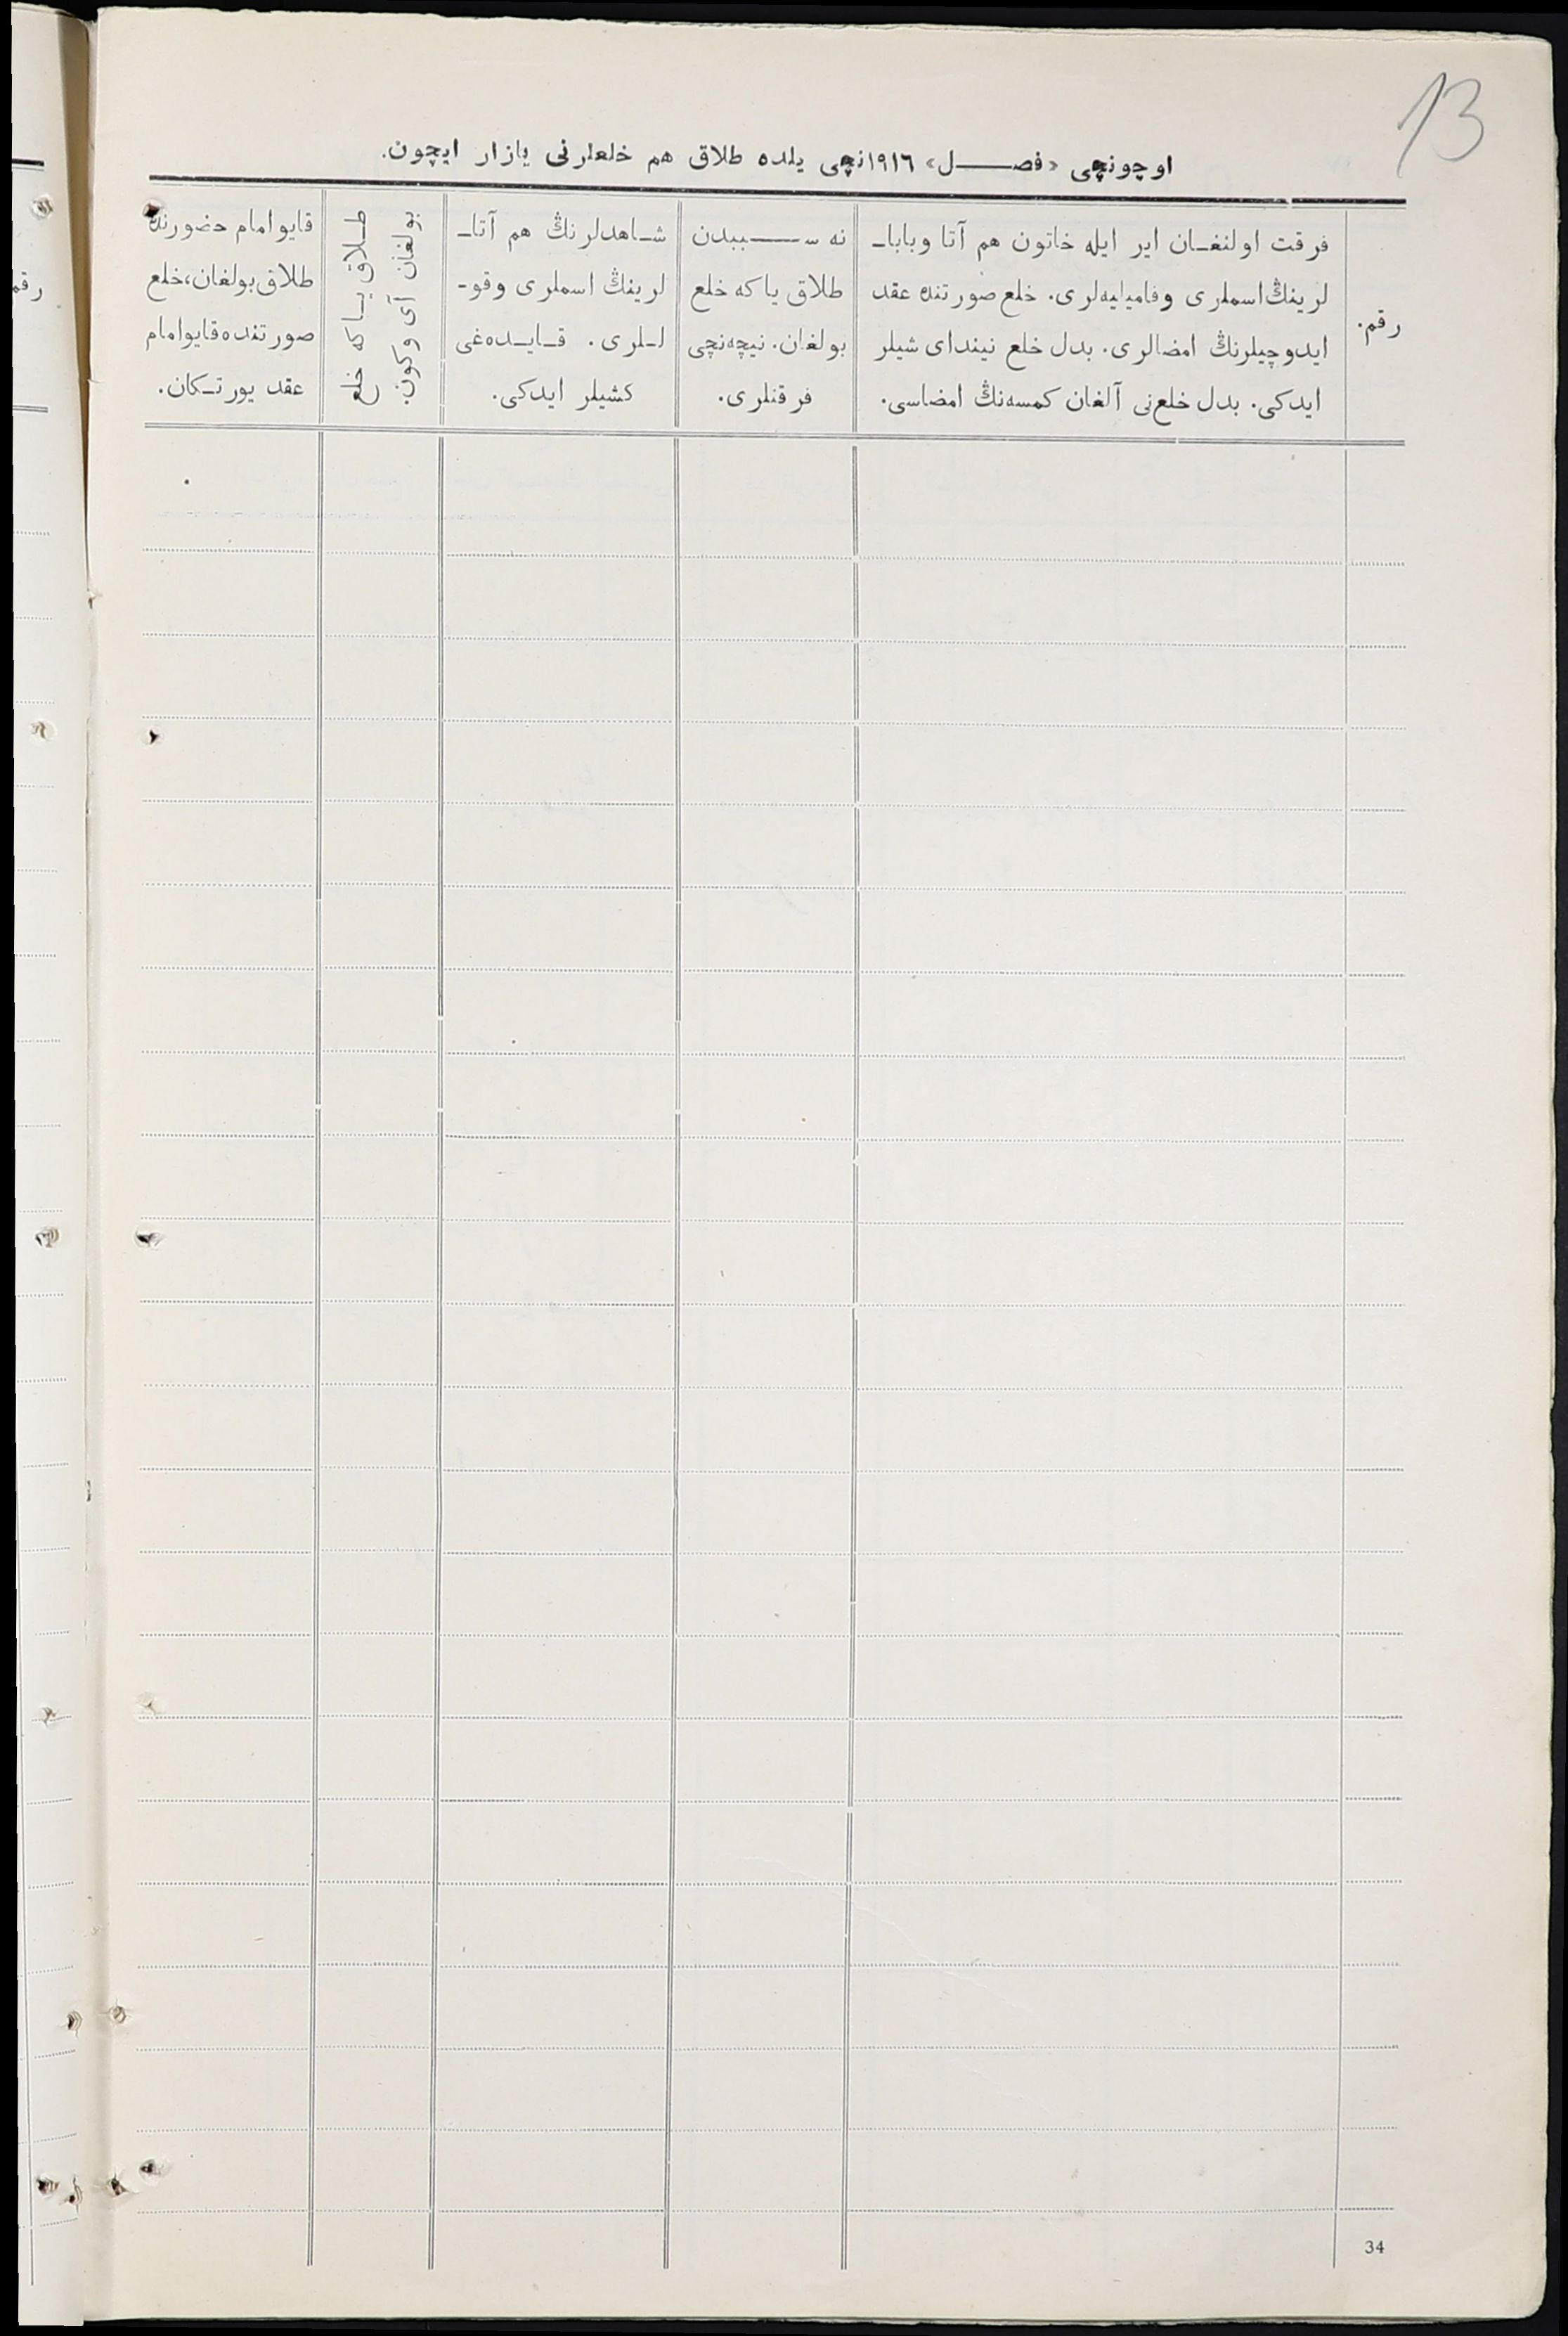 13
اوچونچی «فصل» ١٩١٦نچی یلده طلاق هم خلعلرنی یازار ایچون.
رقم.
فرقت اولنغان ایر ایله خاتون هم آتا وبابا-
لرینڭ اسملری وفامیلیه‌لری. خلع صورتنده عقد
ایدوچیلرنڭ امضالری. بدل خلع نیندای شیلر
ایدکی. بدل خلع‌نی آلغان کمسه‌نڭ امضاسی.
نه سببدن
طلاق یا که خلع
بولغان. نیچه‌نچی
فرقتلری.
شاهدلرنڭ هم آتا-
لرینڭ اسملری وقو-
للری. قایده‌غی
کشیلر ایدکی.
طلاق یا که خلع
بولغان آی وکون.
قایو امام حضورنده
طلاق بولغان، خلع
صورتنده قایو امام
عقد یورتکان.
34